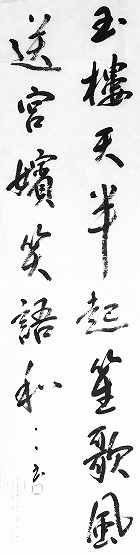 玉樓天半起笙歌風
送宮嬪笑語和